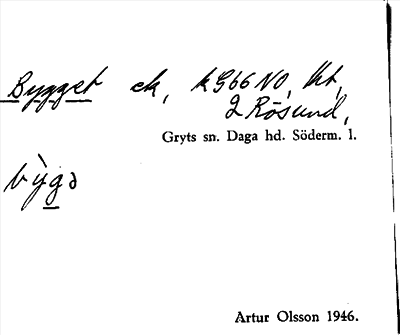 Bygget ek, k 966 NO, tht,
2 Rösund,
Gryts sn. Daga hd. Söderm. l.
bỳgə
Artur Olsson 1946.